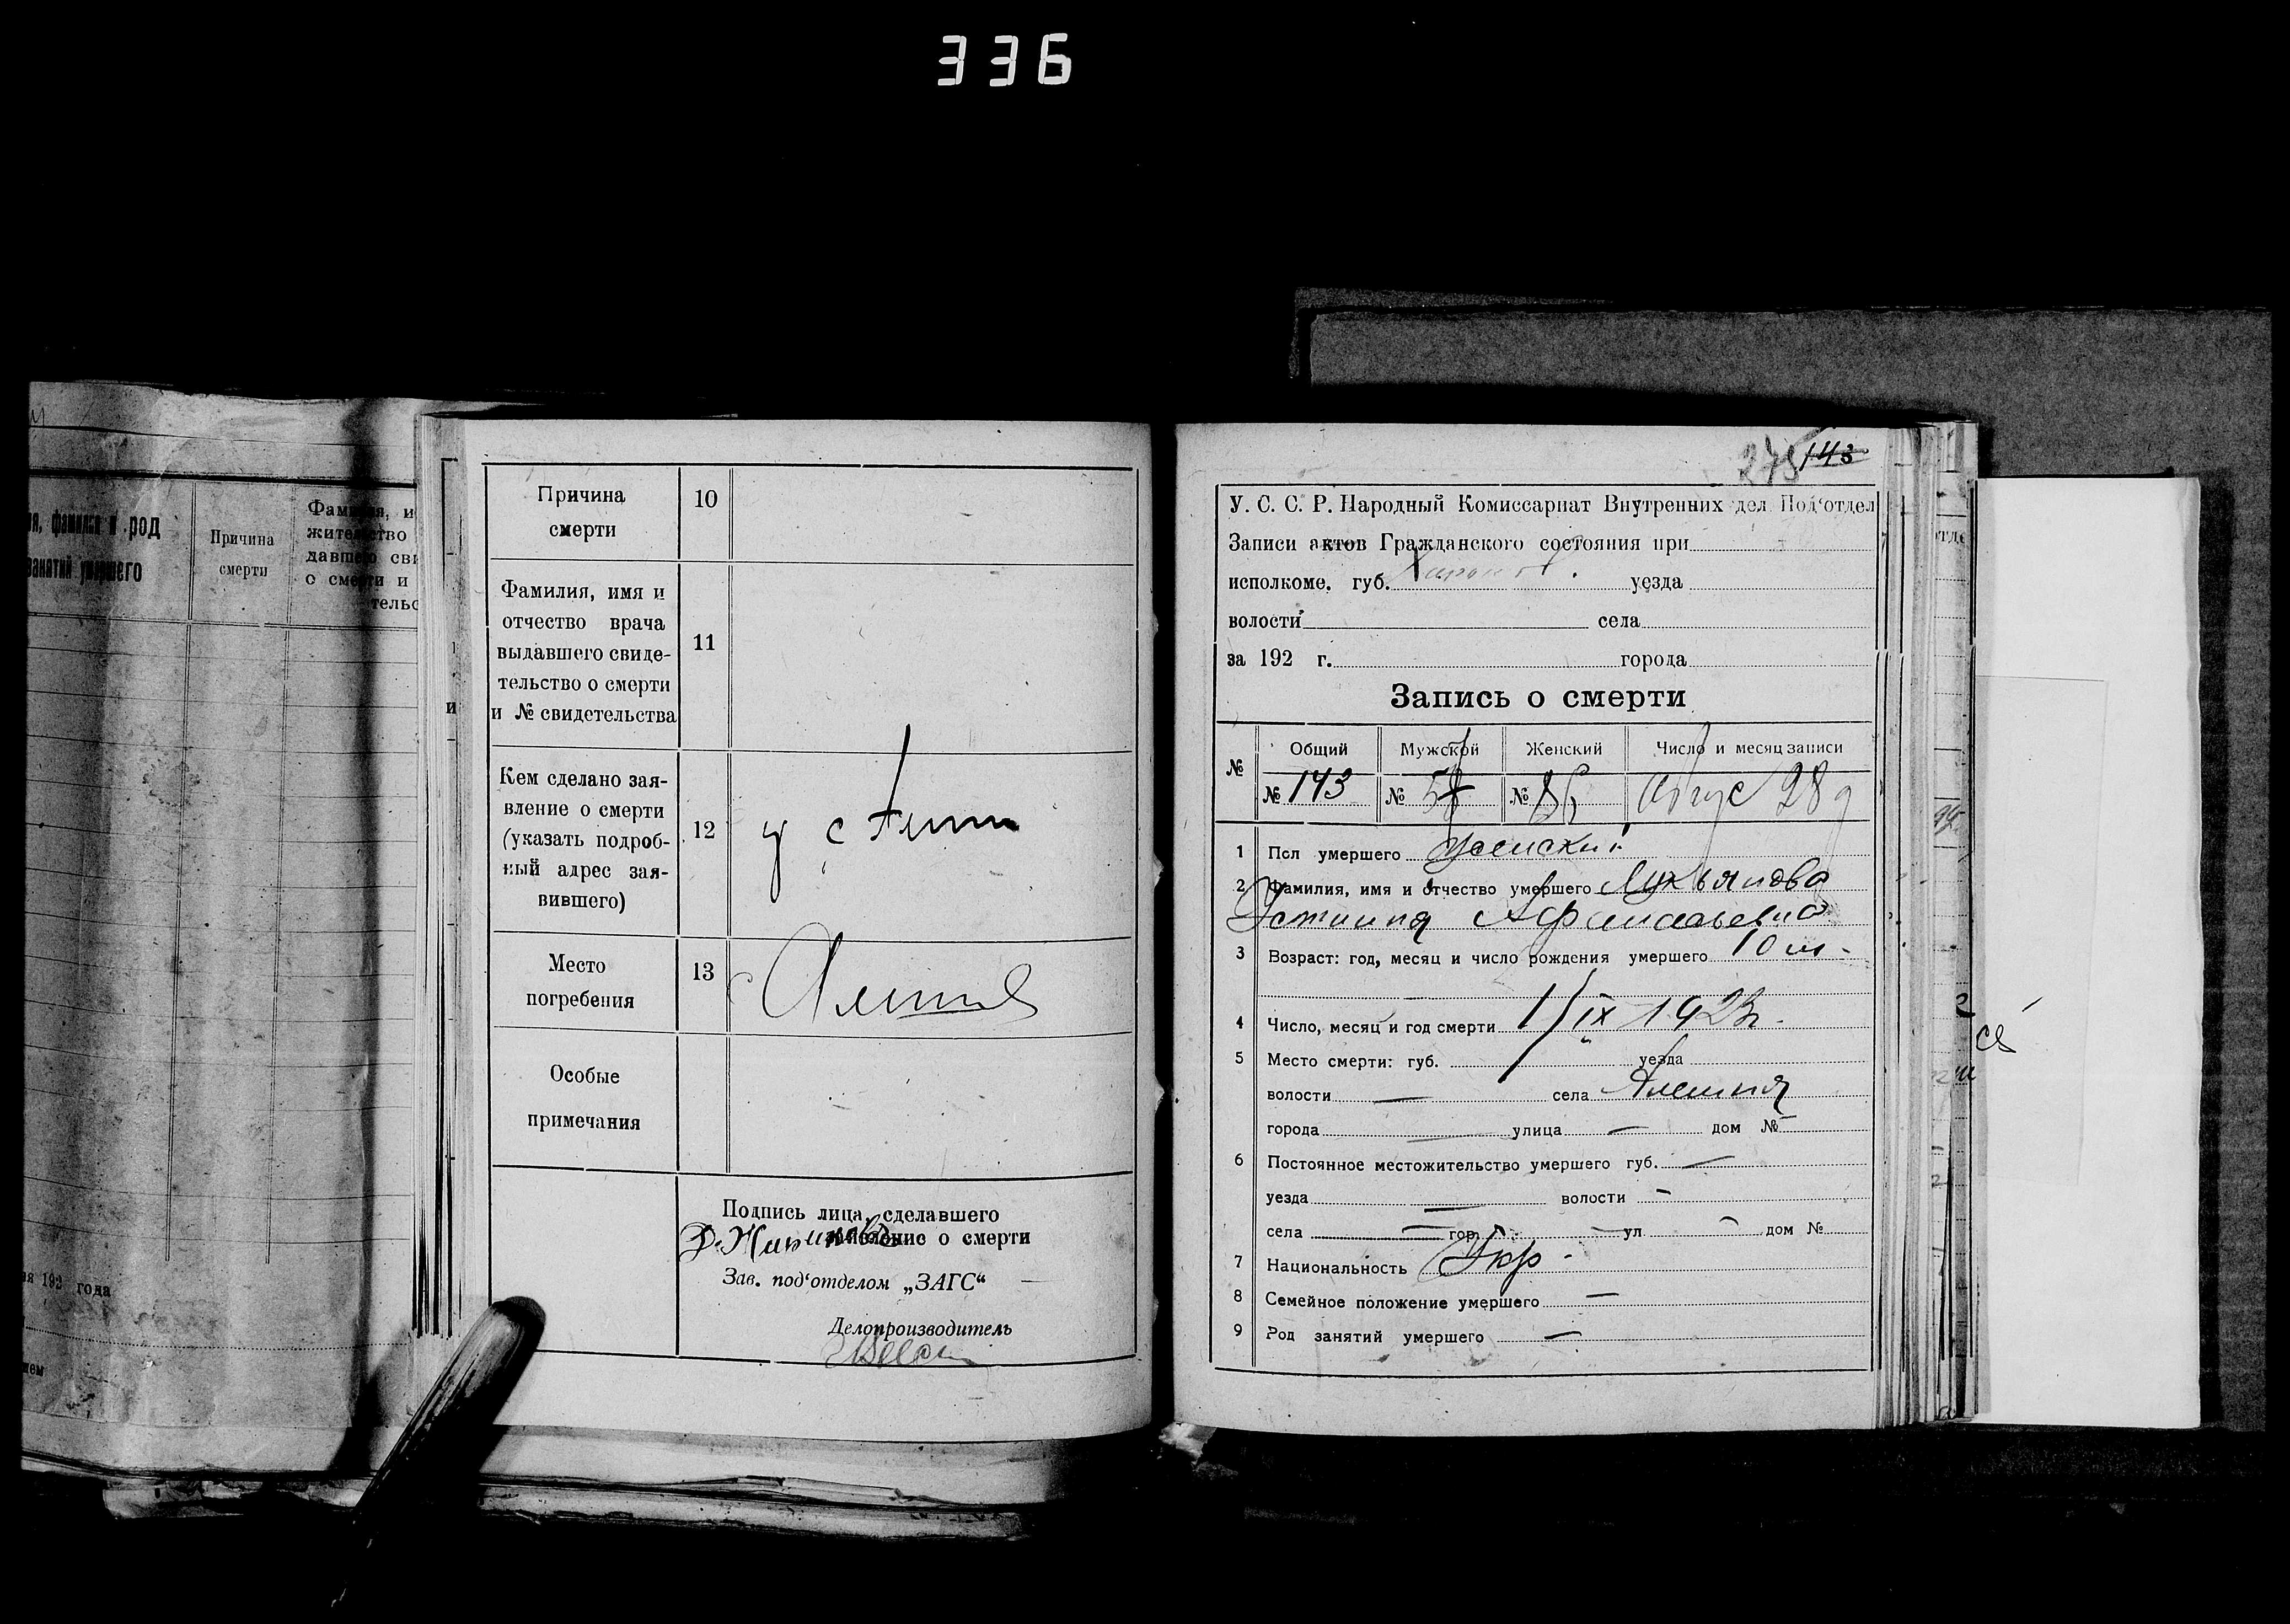 336
род
занятий умершего
Причина
смерти
и
192 года
Причина
смерти
10
Фамилия, имя и
отчество врача
выдавшего свиде-
тельство о смерти
и № свидетельства
11
Кем сделано зая-
вление о смерти
(указать подроб-
ный адрес зая-
вившего)
12
устно
Место
погребения
13
Особые
примечания
Подпись лица, сделавшего
заявление о смерти
Зав. под‘отделом „ЗАГС“
Делопроизводитель
143
У. С. С. Р. Народный Комиссариат Внутренних дел Под‘отдел
Записи актов Гражданского состояния при
исполкоме. губ. уезда
волости села
за 192 г. города
Запись о смерти
№ Общий Мужской Женский Число и месяц записи
№ 143 № № 86 28
1 Пол умершего женский
2 Фамилия, имя и отчество умершего Лукьянова
Устиния Афанасьевна
3 Возраст: год, месяц и число рождения умершего 10 м.
4 Число, месяц и год смерти 1/IX 1923 г.
5 Место смерти: губ. уезда
волости — села Алешня
города — улица — дом №
6 Постоянное местожительство умершего губ. —
уезда — волости —
села — гор. — ул — дом №
7 Национальность Укр.
8 Семейное положение умершего —
9 Род занятий умершего —